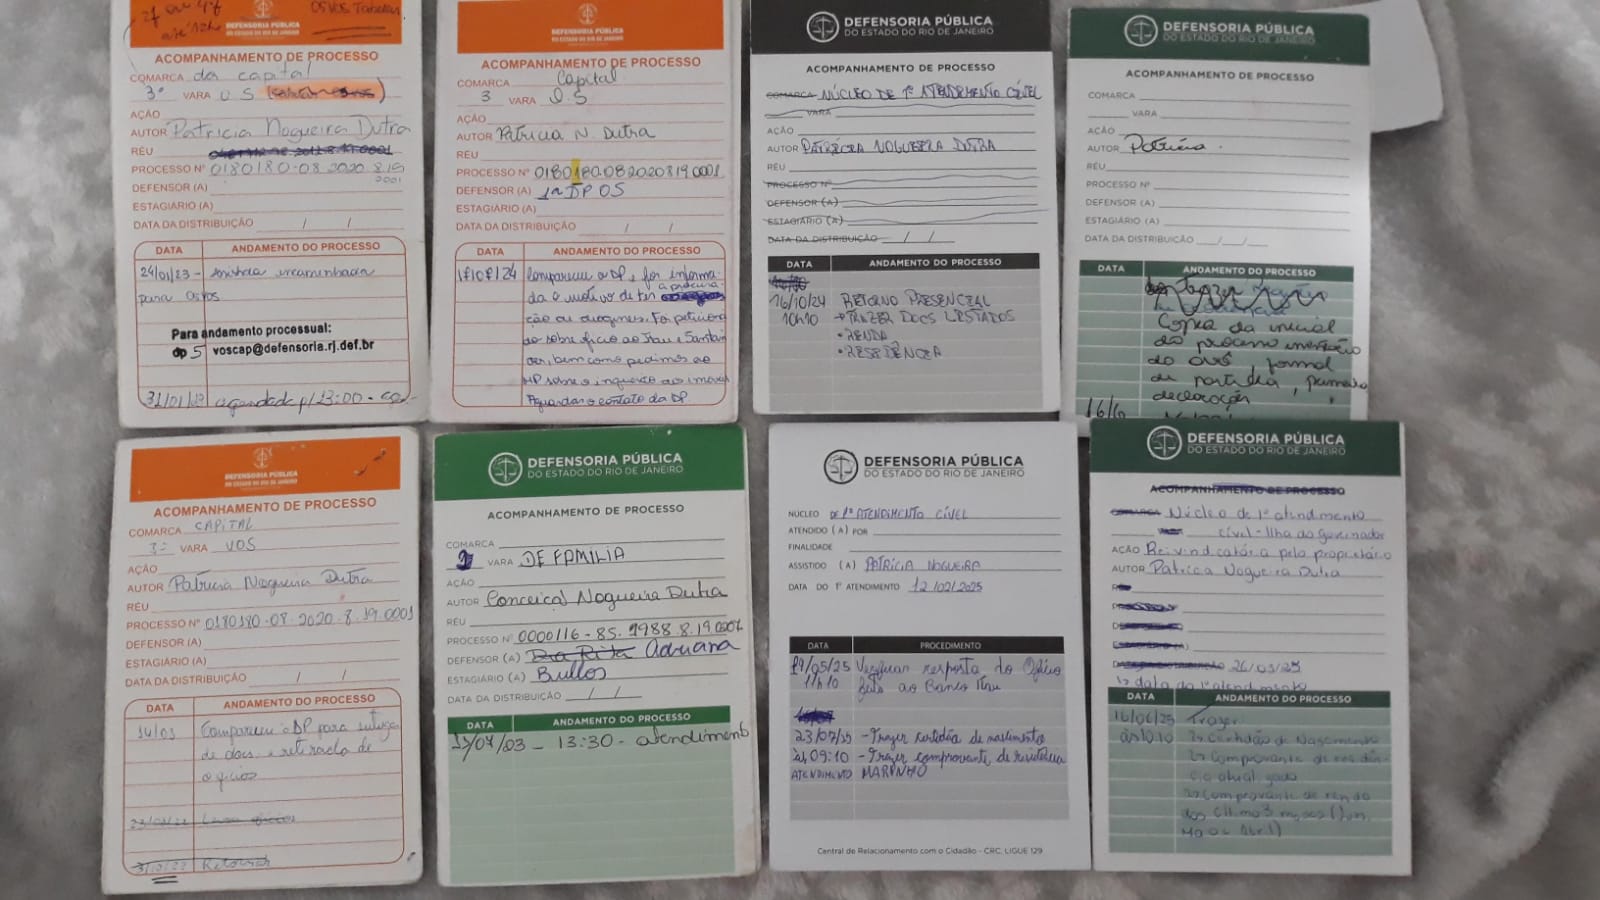 até 12h
DEFENSORIA PÚBLICA
DO ESTADO DO RIO DE JANEIRO
ACOMPANHAMENTO DE PROCESSO
COMARCA da capital
3º VARA O S
AÇÃO
AUTOR Patricia Nogueira Dutra
RÉU
PROCESSO Nº 0180180-08.2020.8.19
0001
DEFENSOR (A)
ESTAGIÁRIO (A)
DATA DA DISTRIBUIÇÃO / /
DATA ANDAMENTO DO PROCESSO
24/01/23 - Assistida encaminhada
para OSVOS
Para andamento processual:
dp 5 voscap@defensoria.rj.def.br
agendada p/ 13:00
DEFENSORIA PÚBLICA
DO ESTADO DO RIO DE JANEIRO
ACOMPANHAMENTO DE PROCESSO
COMARCA Capital
3 VARA O.S
AÇÃO
AUTOR Patricia N. Dutra
REU
PROCESSO Nº 0180180.08.2020.8.19.0001
DEFENSOR (A) 1ª DP OS
ESTAGIÁRIO (A)
DATA DA DISTRIBUIÇÃO / /
DATA ANDAMENTO DO PROCESSO
Compareceu a DP e foi informa-
da o motivo de ter a procura-
ção
do sobre ofício ao Itau e Santan
der, bem como pedimos ao
MP sobre o inquerito aos imóveis
Aguardar o contato da DP
DEFENSORIA PÚBLICA
DO ESTADO DO RIO DE JANEIRO
ACOMPANHAMENTO DE PROCESSO
COMARCA NÚCLEO DE 1º ATENDIMENTO CÍVEL
VARA
AÇÃO
AUTOR PATRÍCIA NOGUEIRA DUTRA
RÉU
PROCESSO Nº
DEFENSOR (A)
ESTAGIÁRIO (A)
DATA DA DISTRIBUIÇÃO / /
DATA ANDAMENTO DO PROCESSO
16/10/24 RETORNO PRESENCIAL
10h10 → TRAZER DOCS LISTADOS
• RENDA
• RESIDÊNCIA
DEFENSORIA PÚBLICA
DO ESTADO DO RIO DE JANEIRO
ACOMPANHAMENTO DE PROCESSO
COMARCA
VARA
AÇÃO
AUTOR Patrícia.
RÉU
PROCESSO Nº
DEFENSOR (A)
ESTAGIÁRIO (A)
DATA DA DISTRIBUIÇÃO / /
DATA ANDAMENTO DO PROCESSO
Copia da inicial
do processo inventário
do avô, formal
de partilha, primeira
declaração
16/10
DEFENSORIA PÚBLICA
DO ESTADO DO RIO DE JANEIRO
ACOMPANHAMENTO DE PROCESSO
COMARCA CAPITAL
3ª VARA VOS
AÇÃO
AUTOR Patricia Nogueira Dutra
RÉU
PROCESSO Nº 0180180-08.2020.8.19.0001
DEFENSOR (A)
ESTAGIÁRIO (A)
DATA DA DISTRIBUIÇÃO / /
DATA ANDAMENTO DO PROCESSO
14/03 Compareceu a DP para entrega
de docs e retirada de
ofícios
Retornar
DEFENSORIA PÚBLICA
DO ESTADO DO RIO DE JANEIRO
ACOMPANHAMENTO DE PROCESSO
COMARCA
VARA DE FAMÍLIA
AÇÃO
AUTOR Conceicao Nogueira Dutra
RÉU
PROCESSO Nº 0000116-85.1988.8.19.0001
DEFENSOR (A) Dra Rita Adriana
ESTAGIÁRIO (A) Bullos
DATA DA DISTRIBUIÇÃO / /
DATA ANDAMENTO DO PROCESSO
13:30 - atendimento
DEFENSORIA PÚBLICA
DO ESTADO DO RIO DE JANEIRO
NÚCLEO DE 1º ATENDIMENTO CÍVEL
ATENDIDO (A) POR
FINALIDADE
ASSISTIDO (A) PATRÍCIA NOGUEIRA
DATA DO 1º ATENDIMENTO 12/02/2025
DATA PROCEDIMENTO
19/05/25 Verificar resposta do Ofício
11h10 feito ao Banco Itau
23/07/25 - Trazer certidão de nascimento
às 09:10 - Trazer comprovante de residência
ATENDIMENTO MARINHO
Central de Relacionamento com o Cidadão - CRC, LIGUE 129
DEFENSORIA PÚBLICA
DO ESTADO DO RIO DE JANEIRO
ACOMPANHAMENTO DE PROCESSO
COMARCA Núcleo de 1º atendimento
cível - Ilha do governador
AÇÃO Reivindicatória pelo proprietário
AUTOR Patricia Nogueira Dutra
26/03/25
1ª data do 1º atendimento
DATA ANDAMENTO DO PROCESSO
16/06/25 Trazer
às 10:10 1) Certidão de Nascimento
2) Comprovante de residên-
cia atualizado
3) Comprovante de renda
dos últimos 3 meses